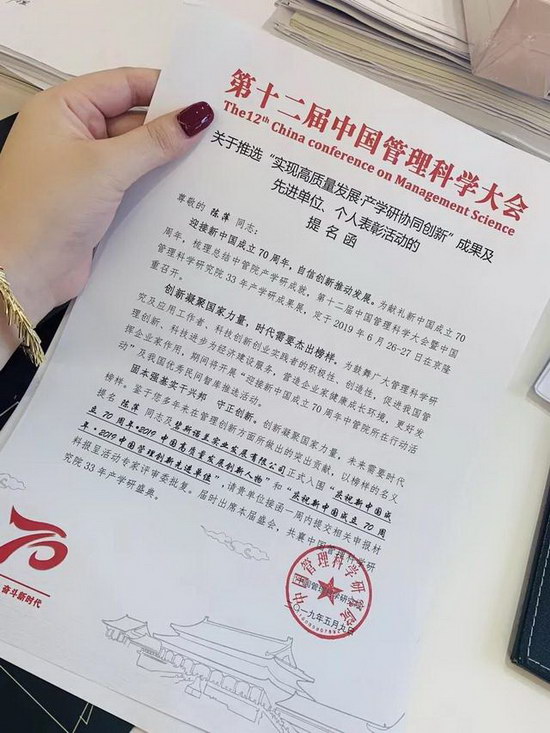 第十二届中国管理科学大会
The 12th China conference on Management Science
关于推选“实现高质量发展·产学研协同创新”成果及
先进单位、个人表彰活动的
提名函
尊敬的 陈萍 同志:
迎接新中国成立70周年,自信创新推动发展。为献礼新中国成立70
周年,梳理总结中管院产学研成就,第十二届中国管理科学大会暨中国
管理科学研究院33年产学研成果展,定于2019年6月26-27日在京隆
重召开。
创新凝聚国家力量,时代需要杰出榜样。为鼓舞广大管理科学研
究及应用工作者、科技创新创业实践者的积极性、创造性,促进我国管
理创新、科技进步为经济建设服务,营造企业家健康成长环境,更好发
挥企业家作用,期间将开展“迎接新中国成立70周年中管院所在行动活
动”及我国优秀民间智库推选活动。
固本强基实干兴邦 守正创新。创新凝聚国家力量,未来需要时代
榜样。鉴于您多年来在管理创新方面所做出的突出贡献,以榜样的名义
提名 陈萍 同志及梵斯诺里实业发展有限公司正式入围“庆祝新中国成
立70周年·2019中国高质量发展创新人物”和“庆祝新中国成立70周
年·2019中国管理创新先进单位”,请贵单位接函一周内提交相关申报材
料报呈活动专家评审委批复。届时出席本届盛会,共襄中国管理科学研
究院33年产学研盛典。
中国管理科学研究院
一九年五月九日
70
奋斗新时代